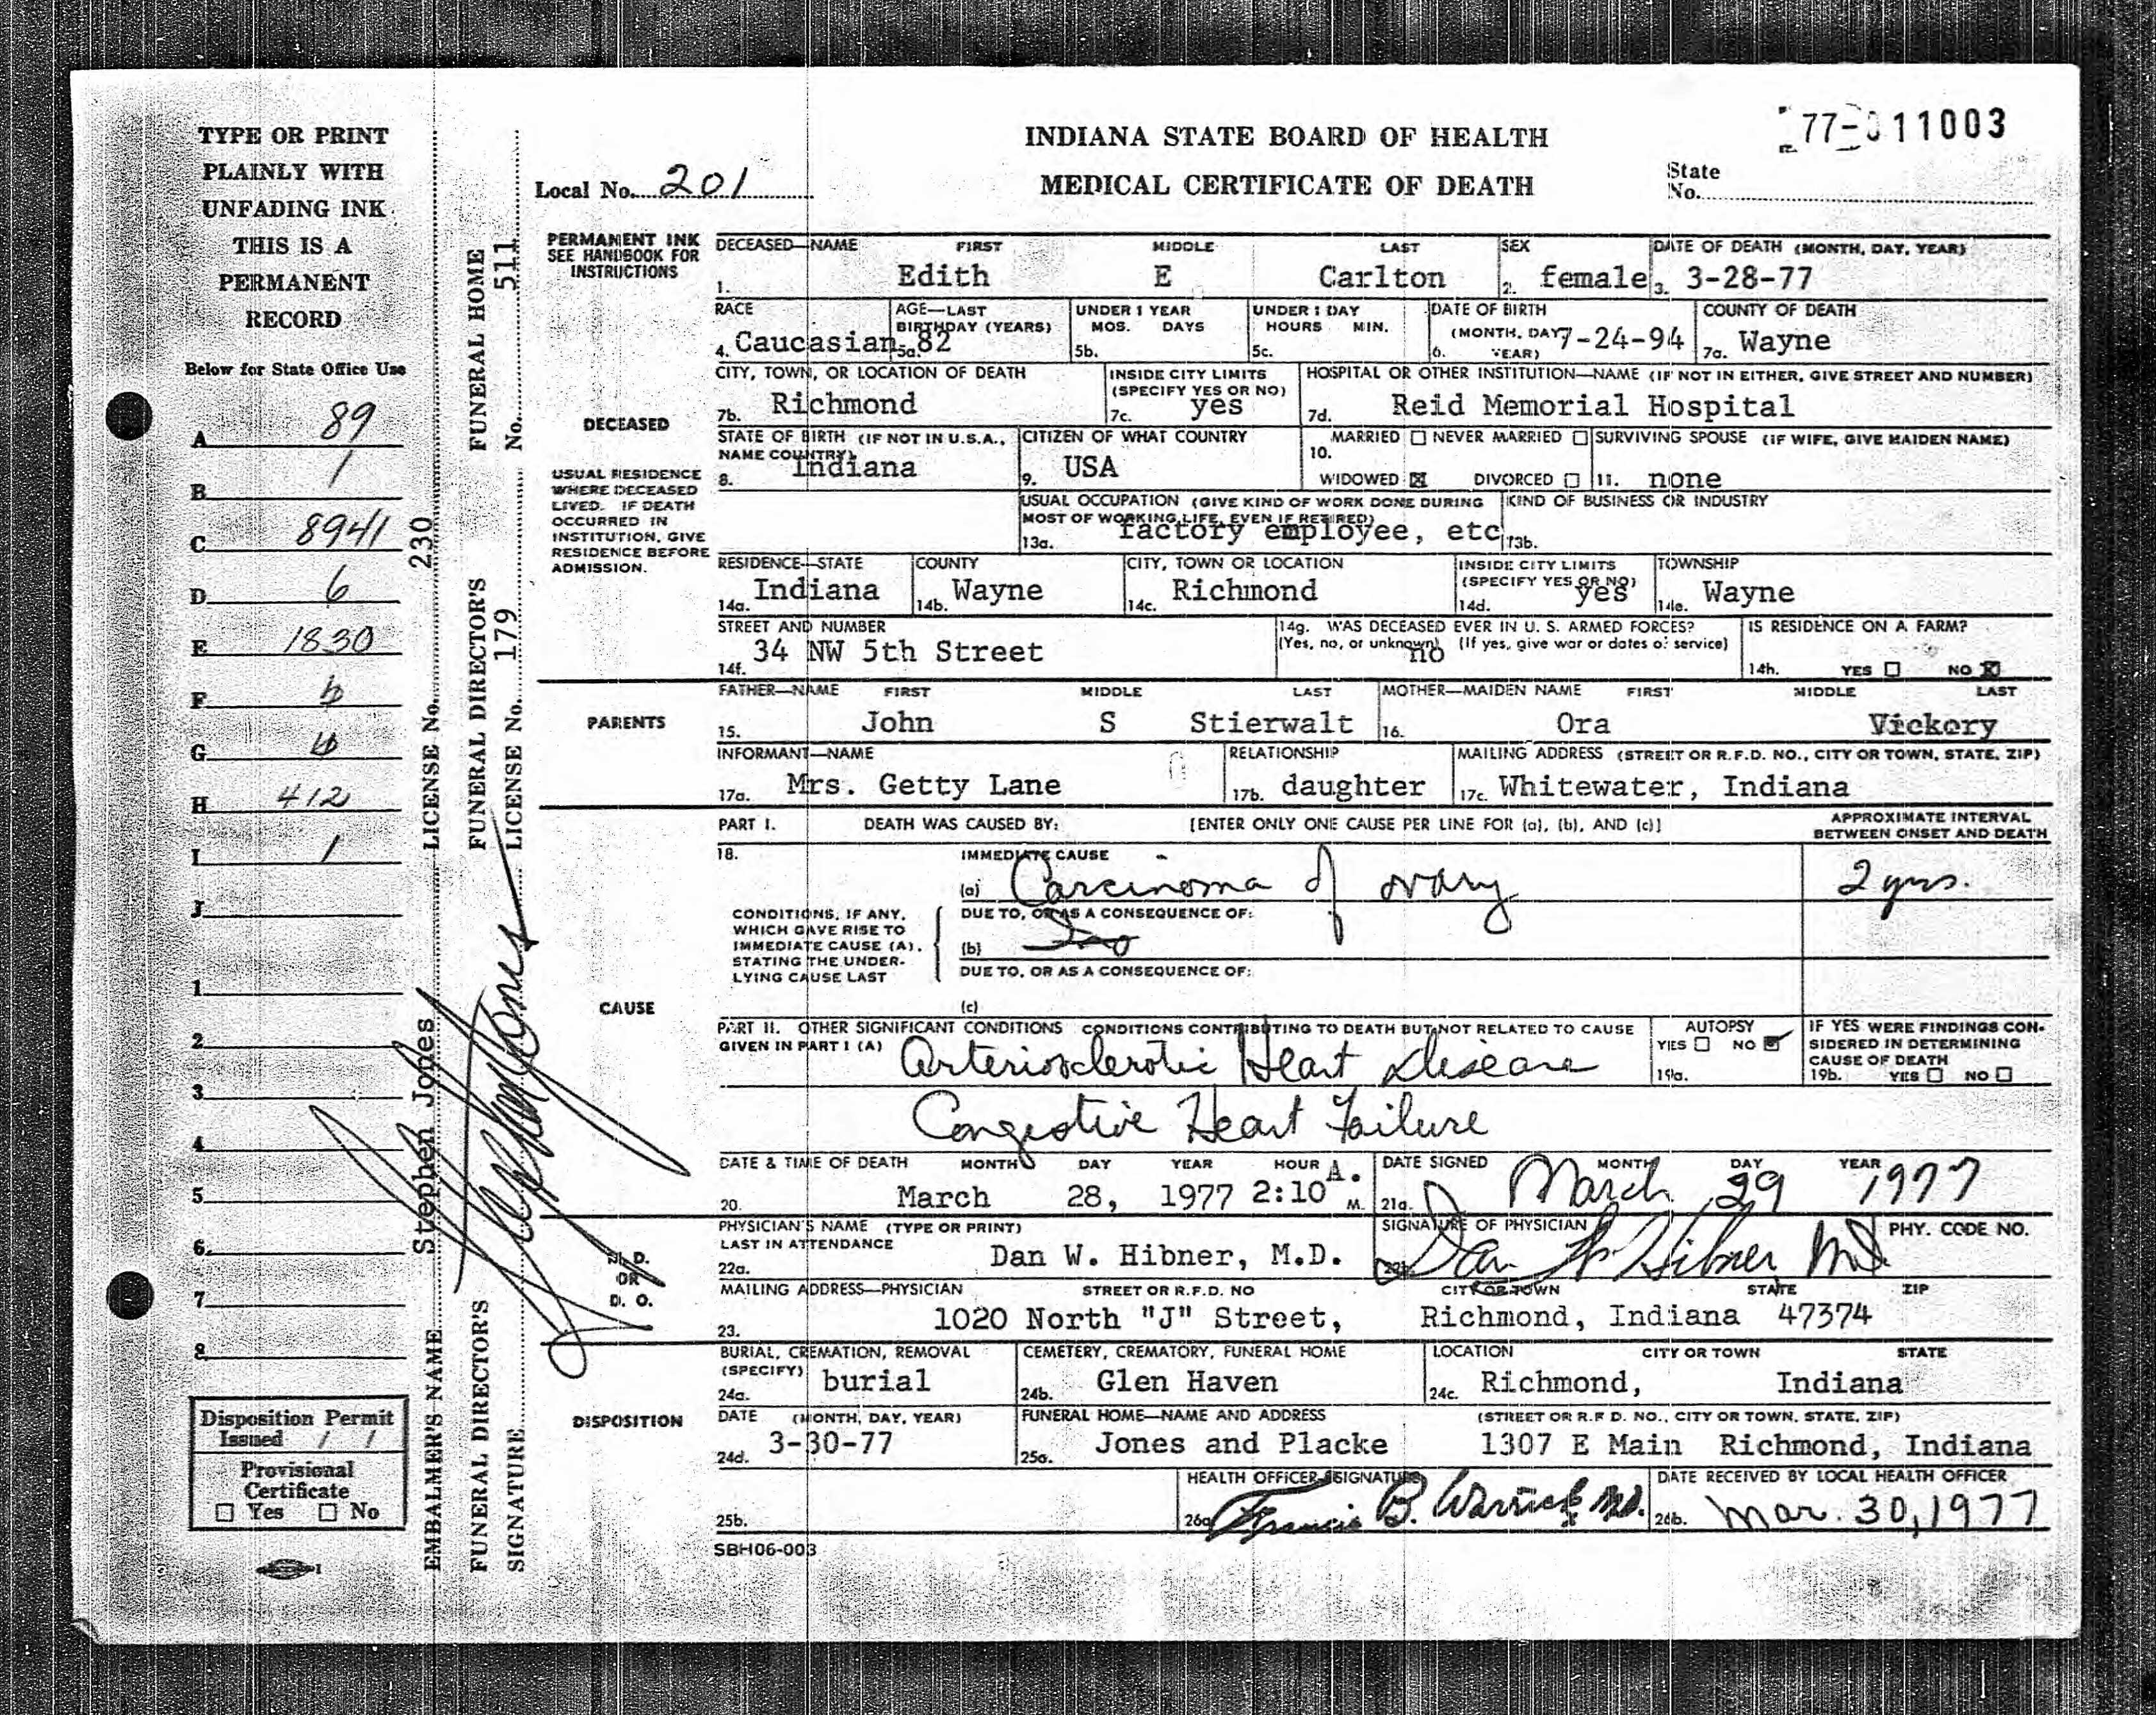 77-011003
INDIANA STATE BOARD OF HEALTH
MEDICAL CERTIFICATE OF DEATH
Local No. 201
State
No.
TYPE OR PRINT
PLAINLY WITH
UNFADING INK
THIS IS A
PERMANENT
RECORD
Below for State Office Use
A 89
B 1
C 8941
D 6
E 1830
F
G
H 412
I 1
J
1
2
3
4
5
6.
7
8
Disposition Permit
Issued / /
Provisional
Certificate
☐ Yes ☐ No
EMBALMER'S NAME Stephen Jones LICENSE No. 230
FUNERAL DIRECTOR'S LICENSE No. 179
FUNERAL HOME No. 511
FUNERAL DIRECTOR'S SIGNATURE Stephen Jones
PERMANENT INK
SEE HANDBOOK FOR
INSTRUCTIONS
DECEASED
USUAL RESIDENCE
WHERE DECEASED
LIVED. IF DEATH
OCCURRED IN
INSTITUTION, GIVE
RESIDENCE BEFORE
ADMISSION.
DECEASED—NAME FIRST MIDDLE LAST SEX DATE OF DEATH (MONTH, DAY, YEAR)
1. Edith E Carlton 2. female 3. 3-28-77
RACE AGE—LAST BIRTHDAY (YEARS) UNDER 1 YEAR MOS. DAYS UNDER 1 DAY HOURS MIN. DATE OF BIRTH (MONTH, DAY YEAR) COUNTY OF DEATH
4. Caucasian 5a. 82 5b. 5c. 6. 7-24-94 7a. Wayne
CITY, TOWN, OR LOCATION OF DEATH INSIDE CITY LIMITS (SPECIFY YES OR NO) HOSPITAL OR OTHER INSTITUTION—NAME (IF NOT IN EITHER, GIVE STREET AND NUMBER)
7b. Richmond 7c. yes 7d. Reid Memorial Hospital
STATE OF BIRTH (IF NOT IN U.S.A., NAME COUNTRY) CITIZEN OF WHAT COUNTRY 10. MARRIED ☐ NEVER MARRIED ☐ SURVIVING SPOUSE (IF WIFE, GIVE MAIDEN NAME)
8. Indiana 9. USA WIDOWED ☒ DIVORCED ☐ 11. none
USUAL OCCUPATION (GIVE KIND OF WORK DONE DURING MOST OF WORKING LIFE, EVEN IF RETIRED) KIND OF BUSINESS OR INDUSTRY
13a. factory employee, etc 13b.
RESIDENCE—STATE COUNTY CITY, TOWN OR LOCATION INSIDE CITY LIMITS (SPECIFY YES OR NO) TOWNSHIP
14a. Indiana 14b. Wayne 14c. Richmond 14d. yes 14e. Wayne
STREET AND NUMBER 14g. WAS DECEASED EVER IN U. S. ARMED FORCES? IS RESIDENCE ON A FARM?
14f. 34 NW 5th Street (Yes, no, or unknown) no (If yes, give war or dates of service) 14h. YES ☐ NO ☒
PARENTS
FATHER—NAME FIRST MIDDLE LAST MOTHER—MAIDEN NAME FIRST MIDDLE LAST
15. John S Stierwalt 16. Ora Vickory
INFORMANT—NAME RELATIONSHIP MAILING ADDRESS (STREET OR R.F.D. NO., CITY OR TOWN, STATE, ZIP)
17a. Mrs. Getty Lane 17b. daughter 17c. Whitewater, Indiana
CAUSE
PART I. DEATH WAS CAUSED BY: [ENTER ONLY ONE CAUSE PER LINE FOR (a), (b), AND (c)] APPROXIMATE INTERVAL BETWEEN ONSET AND DEATH
18. IMMEDIATE CAUSE
(a) Carcinoma of ovary 2 yrs.
CONDITIONS, IF ANY,
WHICH GAVE RISE TO
IMMEDIATE CAUSE (A),
STATING THE UNDER-
LYING CAUSE LAST
DUE TO, OR AS A CONSEQUENCE OF:
(b)
DUE TO, OR AS A CONSEQUENCE OF:
(c)
PART II. OTHER SIGNIFICANT CONDITIONS CONDITIONS CONTRIBUTING TO DEATH BUT NOT RELATED TO CAUSE GIVEN IN PART I (A)
Arteriosclerotic Heart Disease
Congestive Heart Failure
AUTOPSY
YES ☐ NO ☑
19a.
IF YES WERE FINDINGS CON-
SIDERED IN DETERMINING
CAUSE OF DEATH
19b. YES ☐ NO ☐
DATE & TIME OF DEATH MONTH DAY YEAR HOUR DATE SIGNED MONTH DAY YEAR
20. March 28, 1977 2:10 A. M. 21a. March 29 1977
PHYSICIAN'S NAME (TYPE OR PRINT) LAST IN ATTENDANCE SIGNATURE OF PHYSICIAN PHY. CODE NO.
22a. Dan W. Hibner, M.D. 22b. Dan W Hibner MD
M. D.
OR
D. O.
MAILING ADDRESS—PHYSICIAN STREET OR R.F.D. NO CITY OR TOWN STATE ZIP
23. 1020 North "J" Street, Richmond, Indiana 47374
DISPOSITION
BURIAL, CREMATION, REMOVAL (SPECIFY) CEMETERY, CREMATORY, FUNERAL HOME LOCATION CITY OR TOWN STATE
24a. burial 24b. Glen Haven 24c. Richmond, Indiana
DATE (MONTH, DAY, YEAR) FUNERAL HOME—NAME AND ADDRESS (STREET OR R.F.D. NO., CITY OR TOWN, STATE, ZIP)
24d. 3-30-77 25a. Jones and Placke 1307 E Main Richmond, Indiana
HEALTH OFFICER SIGNATURE DATE RECEIVED BY LOCAL HEALTH OFFICER
25b. 26a. Francis B. Warrick MD. 26b. Mar. 30, 1977
SBH06-003